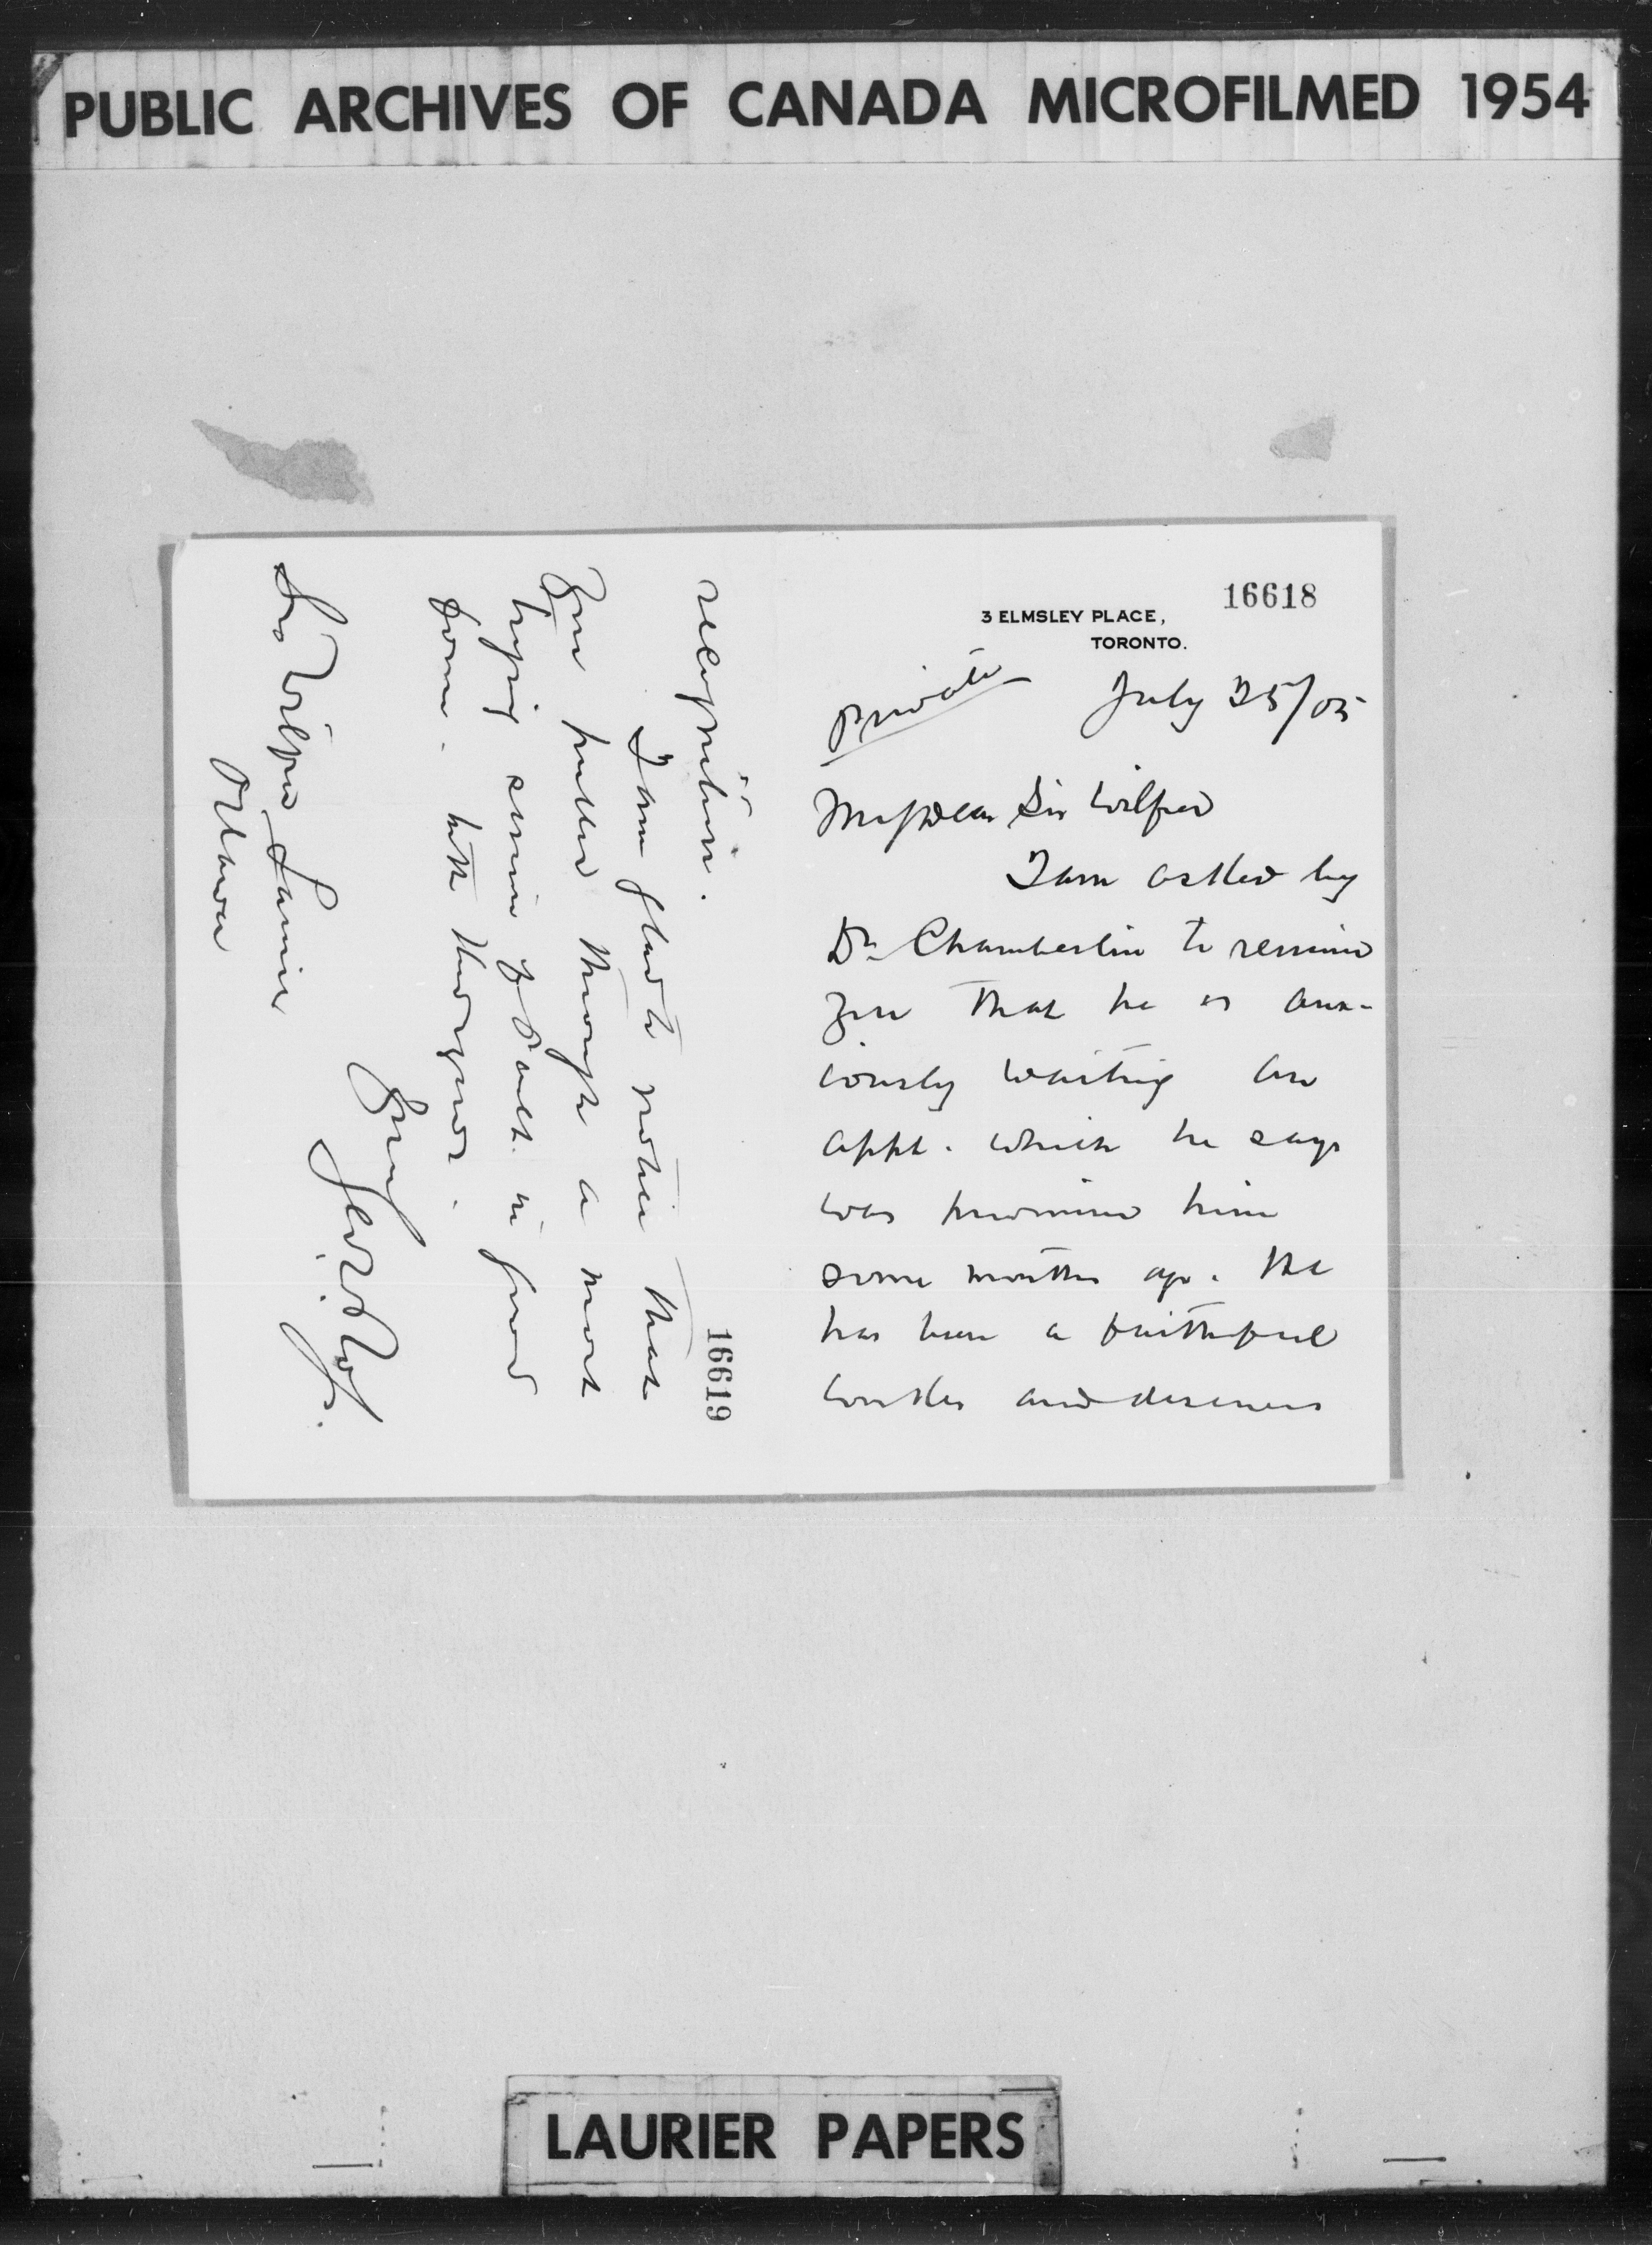 PUBLIC ARCHIVES OF CANADA MICROFILMED 1954
16618
3 ELMSLEY PLACE,
TORONTO.
Private
July 25/05
My Dear Sir Wilfrid
I am asked by
Dr Chamberlin to remind
you that he is anx-
iously waiting an
appt. which he says
was promised him
some months ago. He
has been a faithful
worker and deserves
16619
recognition.
I am glad to notice that
you pulled through a most
trying session of Parlt. in good
form.
Yours
Geo. W. Ross.
Sir Wilfrid Laurier
Ottawa
LAURIER PAPERS